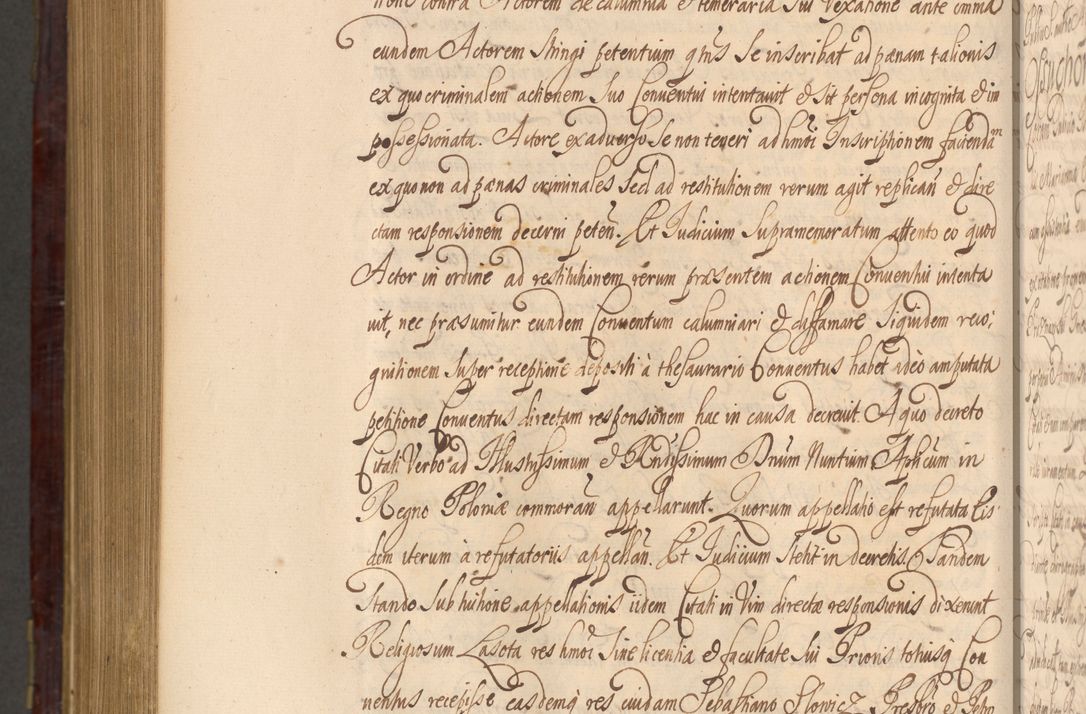 tione contra Actorem de calumnia & temeraria sui vexatione ante omnia
eundem Actorem stringi petentium qtñs se inscribat ad pænam talionis
ex quo criminalem actionem suo Conventui intentavit & sit persona incognita & im
possessionata. Actore ex adverso se non teneri ad hmõi Inscriptionem faciendam
ex quo non ad pænas criminales sed ad restitutionem rerum agit replican̄ & dire
ctam responsionem decerni peten̄. Et Iudicium supramemoratum attento eo quod
Actor in ordine ad restitutionem rerum præsentem actionem Conventui intenta
vit, nec præsumitur eundem Conventum calumniari & diffamare siquidem reco,
gnitionem super receptione depositi à thesaurario Conventus habet adeò amputata
petitione Conventus directam responsionem hac in causa decrevit. A quo decreto
Citati Verbo ad Illustrissimum & Rñdissimum Dnum Nuntium Aplicum in
Regno Poloniæ commoran̄ appellarunt. Quorum appellatio est refutata Eis
dem iterum à refutatoriis appellan̄. Et Iudicium stetit in decretis. Tandem
Stando sub huiusmodi appellationis iidem Citati in Vim directæ responsionis dixerunt
Religiosum Lasota res hmõi sine licentia & facultate sui Prioris totiusq̃ Con
ventus recepisse easdemq̃ res cuidam Sebastiano Slowicz Presbro &